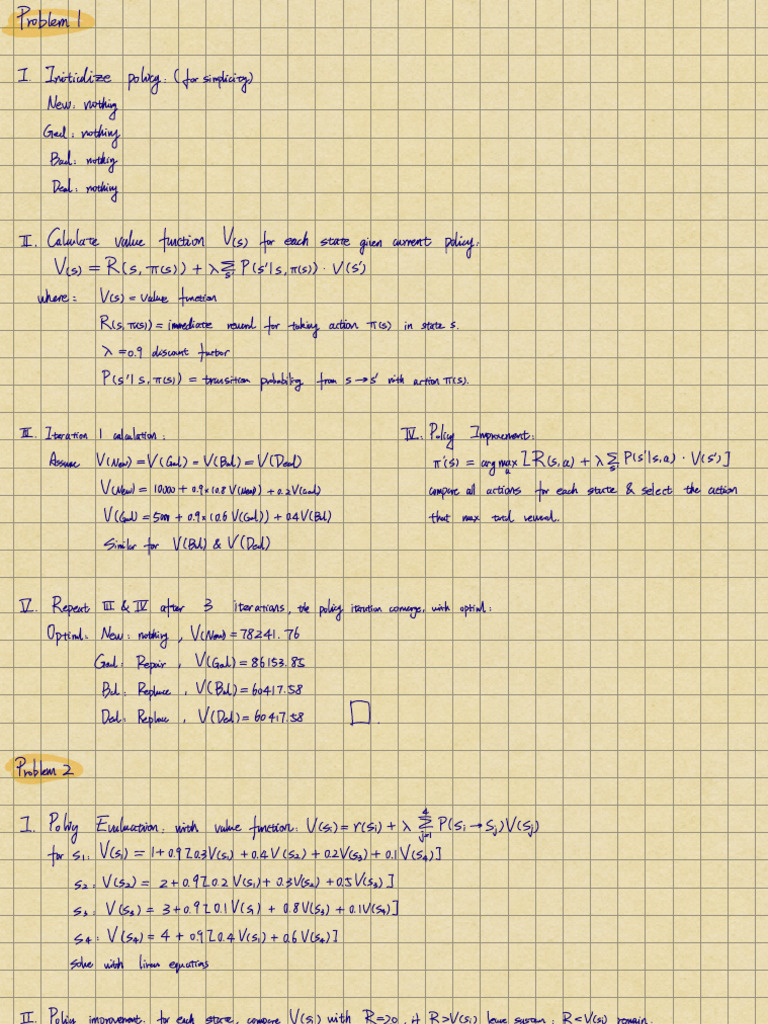 Problem 1
I. Initialize policy: (for simplicity)
New: nothing
Good: nothing
Bad: nothing
Dead: nothing
II. Calculate value function V(s) for each state given current policy:
V(s) = R(s, π(s)) + λ Σ_s' P(s'|s, π(s)) · V(s')
where: V(s) = value function
R(s, π(s)) = immediate reward for taking action π(s) in state s.
λ = 0.9 discount factor
P(s'|s, π(s)) = transition probability from s → s' with action π(s).
III. Iteration 1 calculation:
Assume V(New) = V(Good) = V(Bad) = V(Dead)
V(New) = 10000 + 0.9×(0.8 V(New)) + 0.2 V(Good)
V(Good) = 5000 + 0.9×(0.6 V(Good)) + 0.4 V(Bad)
Similar for V(Bad) & V(Dead)
IV. Policy Improvement:
π'(s) = arg max_a [R(s,a) + λ Σ_s' P(s'|s,a) · V(s')]
compare all actions for each state & select the action
that max total reward.
V. Repeat III & IV after 3 iterations, the policy iteration converge, with optimal:
Optimal: New: nothing, V(New) = 78241.76
Good: Repair, V(Good) = 86153.85
Bad: Replace, V(Bad) = 60417.58
Dead: Replace, V(Dead) = 60417.58 □.
Problem 2
I. Policy Evaluation: with value function: V(si) = r(si) + λ Σ_{j=1}^{4} P(si → sj) V(sj)
for s1: V(s1) = 1 + 0.9[0.3V(s1) + 0.4V(s2) + 0.2V(s3) + 0.1V(s4)]
s2: V(s2) = 2 + 0.9[0.2V(s1) + 0.3V(s2) + 0.5V(s3)]
s3: V(s3) = 3 + 0.9[0.1V(s1) + 0.8V(s3) + 0.1V(s4)]
s4: V(s4) = 4 + 0.9[0.4V(s1) + 0.6V(s4)]
solve with linear equations
II. Policy improvement: for each state, compare V(si) with R=20, if R>V(si) leave system; R<V(si) remain.